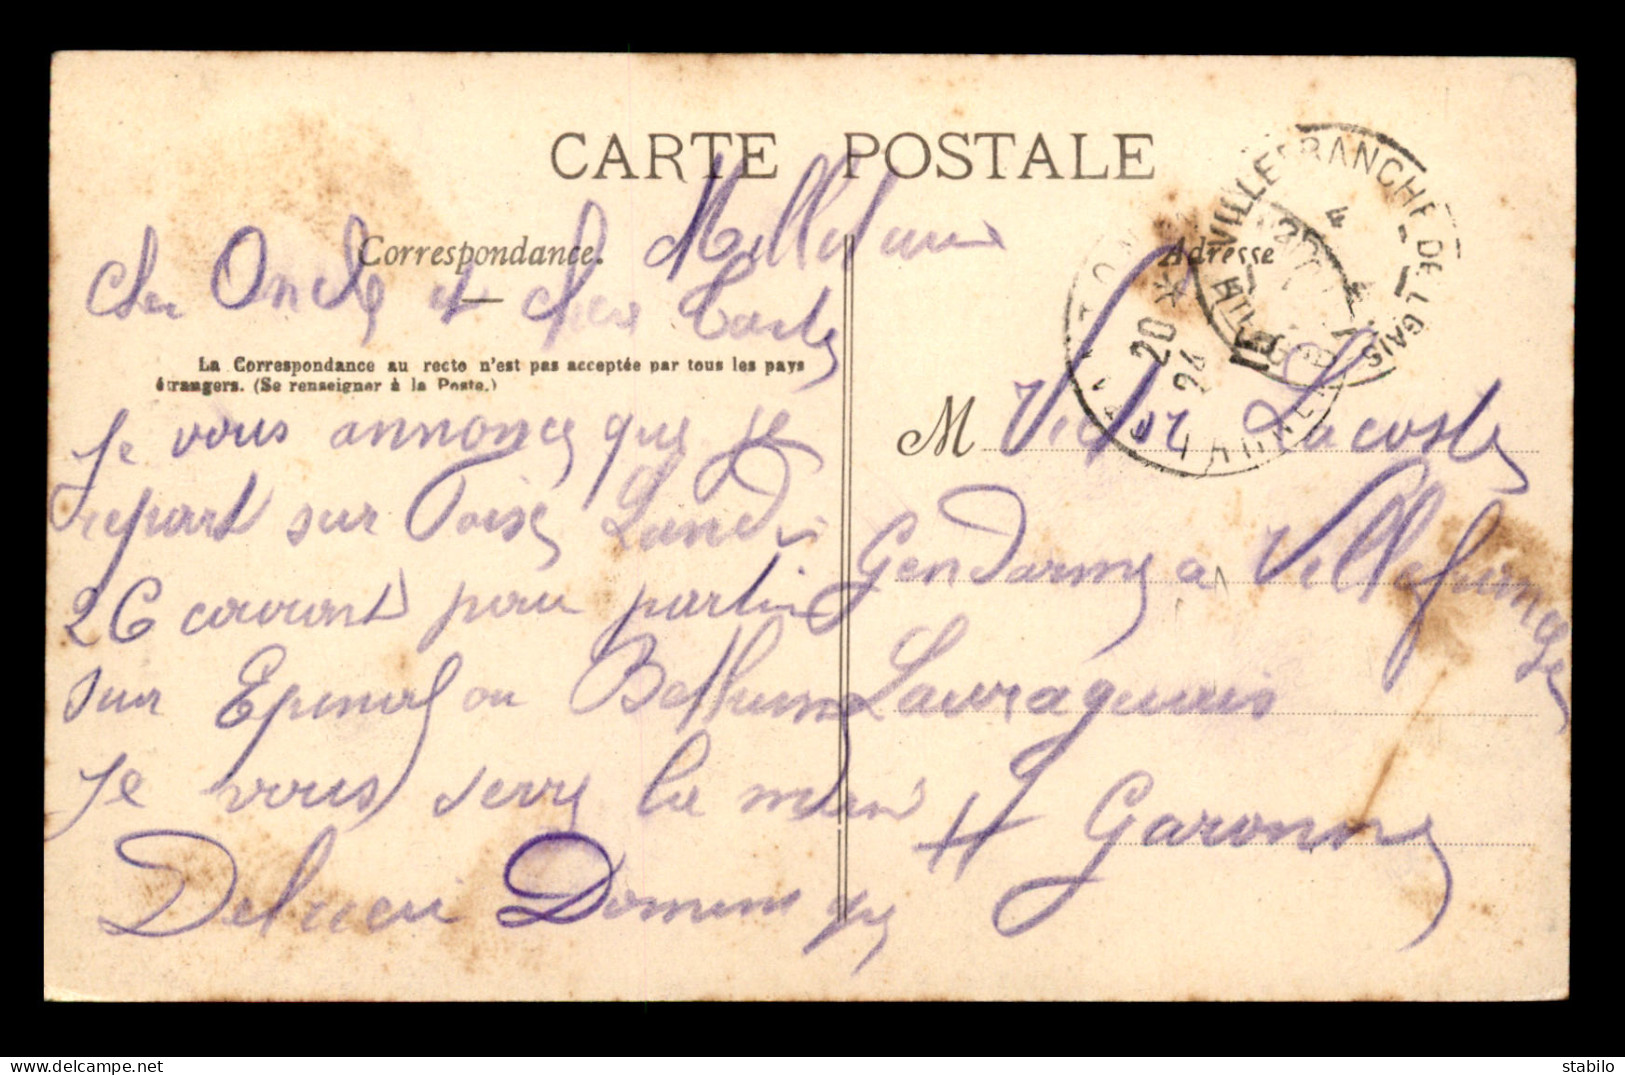 CARTE POSTALE
Correspondance.
Adresse
Cher Oncle et chere Tante
La Correspondance au recto n'est pas acceptée par tous les pays
étrangers. (Se renseigner à la Poste.)
Je vous annonce que je
repart sur Lundi
26 courant pour partir
sur Epinal ou
Je vous serre la main
M Victor Lacoste
Gendarme a Villefranche
Lauraguais
Hte Garonne
VILLEFRANCHE DE L GAIS
20
24
stabilo1